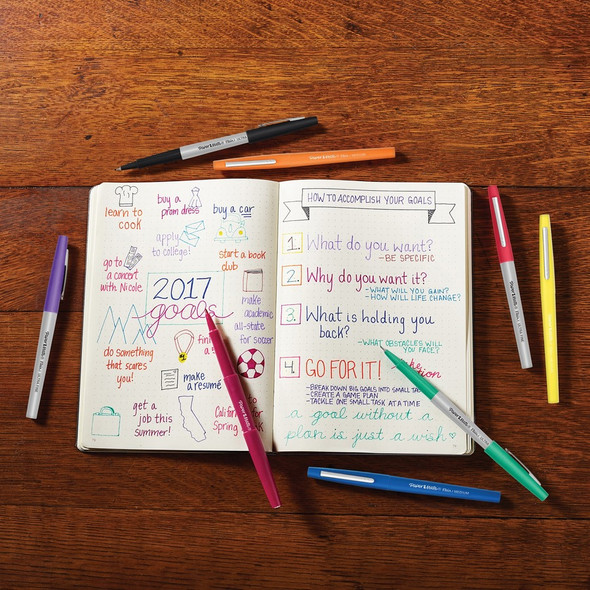 learn to
cook
buy a
prom dress
buy a car
apply
to college!
start a book
club
go to
a concert
with Nicole
2017
goals
make
academic
all-state
for soccer
do something
that scares
you!
make
a resumé
get a
job this
summer!
to
Spring
HOW TO ACCOMPLISH YOUR GOALS
1. What do you want?
- BE SPECIFIC
2. Why do you want it?
- WHAT WILL YOU GAIN?
- HOW WILL LIFE CHANGE?
3. What is holding you
back?
- WHAT OBSTACLES WILL
YOU FACE?
4. GO FOR IT!
- BREAK DOWN BIG GOALS INTO SMALL
- CREATE A GAME PLAN
- TACKLE ONE SMALL TASK AT A TIME
a goal without a
plan is just a wish